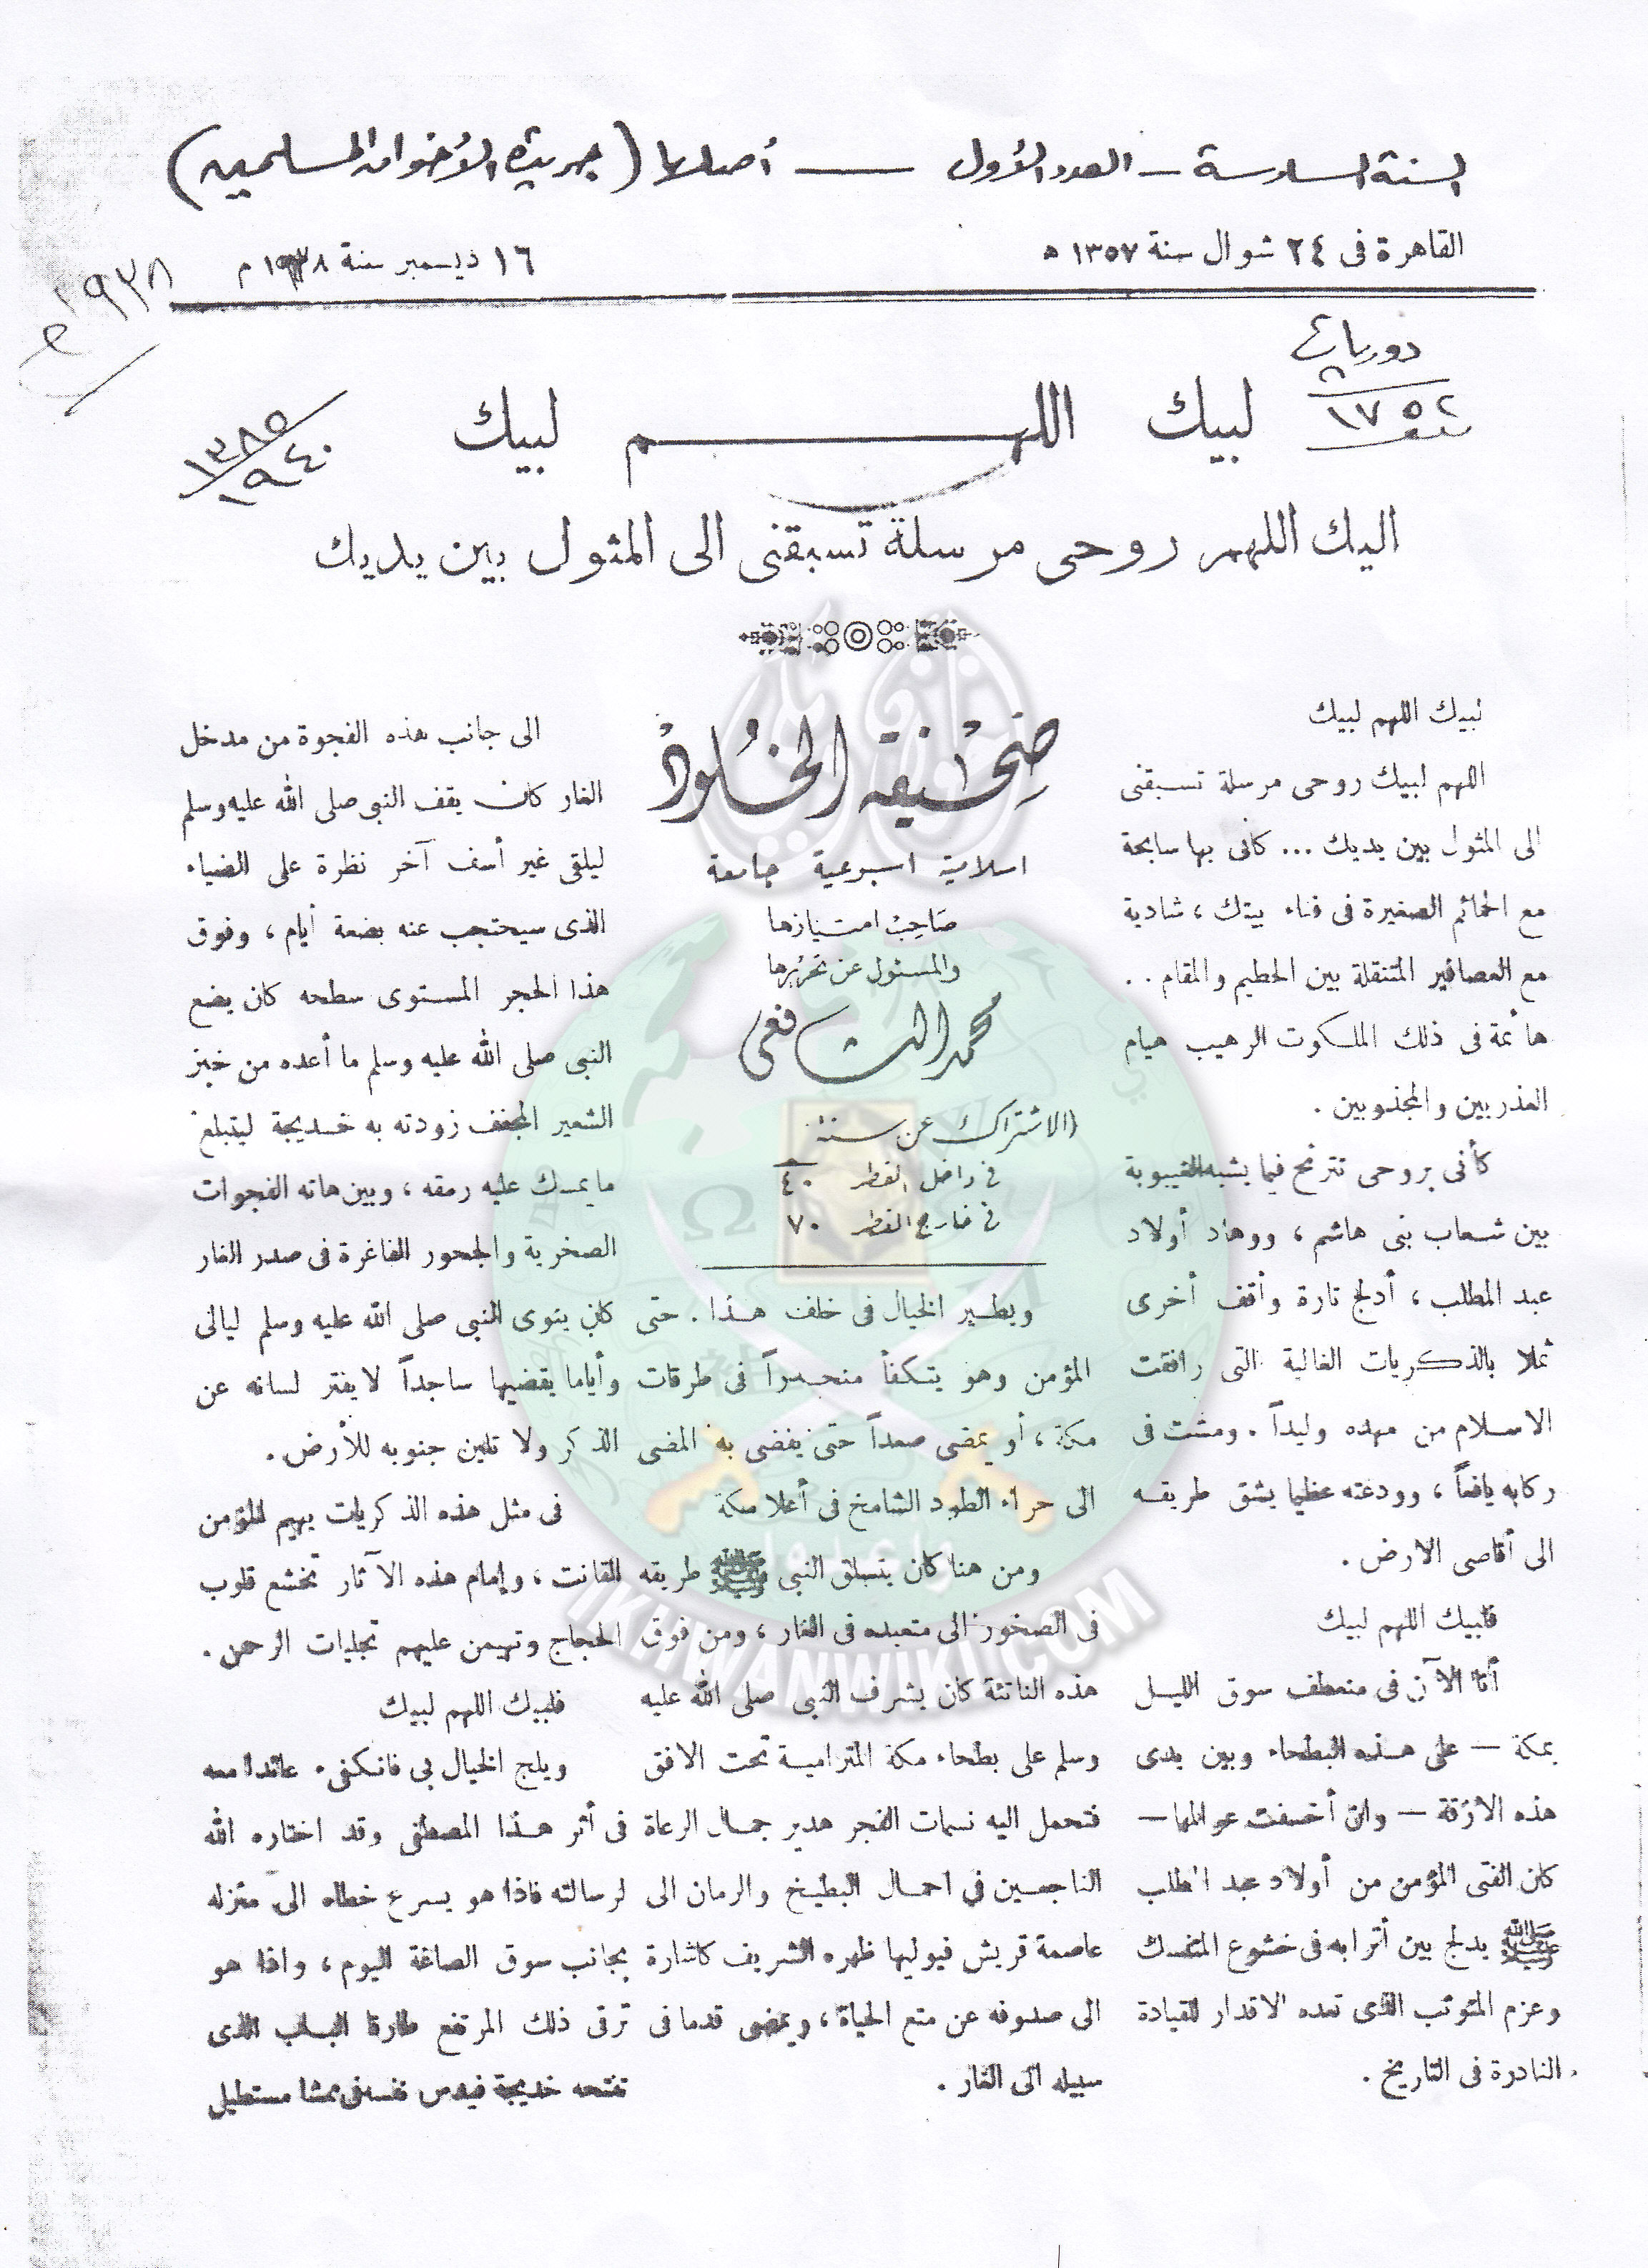 السنة السادسة — العدد الأول — أصلها (جريدة الأخوان المسلمين)
القاهرة فى ٢٤ شوال سنة ١٣٥٧ هـ
١٦ ديسمبر سنة ١٩٣٨ م
١٩٣٨
دوريات
١٧٥٢
١٣٨٥
١٩٤٠
لبيك اللهم لبيك
اليك اللهم روحى مرسلة تسبقنى الى المثول بين يديك
لبيك اللهم لبيك
اللهم لبيك روحى مرسلة تسبقنى
الى المثول بين يديك ... كانى بها سابحة
مع الحمائم الصغيرة فى فناء بيتك ، شادية
مع العصافير المتنقلة بين الحطيم والمقام . .
هائمة فى ذلك الملكوت الرهيب هيام
العذريين والمجذوبين .
كأنى بروحى تترنح فيما يشبه الغيبوبة
بين شعاب بنى هاشم ، ووهاد أولاد
عبد المطلب ، أدلج تارة وأقف أخرى
ثملا بالذكريات الغالية التى رافقت
الاسلام من مهده وليداً . ومشت فى
ركابه يافعاً ، وودعته عظيما يشق طريقه
الى أقاصى الارض .
فلبيك اللهم لبيك
أنا الآن فى منعطف سوق الليل
بمكة — على هذه البطحاء وبين يدى
هذه الازقة — وان أخسفت عوالمها —
كان الفتى المؤمن من أولاد عبد المطلب
ﷺ يدلج بين أترابه فى خشوع المتنسك
وعزم المتوثب الذى تعده الاقدار للقيادة
النادرة فى التاريخ .
صحيفة الخلود
اسلامية اسبوعية جامعة
صاحب امتيازها
والمسئول عن تحريرها
محمد الشافعى
الاشتراك عن سنة
فى داخل القطر ٤٠
فى خارج القطر ٧٠
ويطير الخيال فى خلف هذا . حتى
المؤمن وهو يتكفأ منحدراً فى طرقات
مكة ، أو يمضى صعداً حتى يفضى به المضى
الى حراء الطود الشامخ فى أعلا مكة
ومن هنا كان يتسلق النبى ﷺ طريقه
فى الصخور الى متعبده فى الغار ، ومن فوق
هذه الناتئة كان يشرف النبى صلى الله عليه
وسلم على بطحاء مكة المترامية تحت الافق
فتحمل اليه نسمات الفجر هدير جمال الرعاة
الناجعين فى احمال البطيخ والرمان الى
عاصمة قريش فيوليها ظهره الشريف كاشارة
الى صدوفه عن متع الحياة ، ويمضى قدما فى
سبيله الى الغار .
الى جانب هذه الفجوة من مدخل
الغار كان يقف النبى صلى الله عليه وسلم
ليلقى غير أسف آخر نظرة على الضياء
الذى سيحتجب عنه بضعة أيام ، وفوق
هذا الحجر المستوى سطحه كان يضع
النبى صلى الله عليه وسلم ما أعده من خبز
الشعير المجفف زودته به خديجة ليتبلغ
ما يمسك عليه رمقه ، وبين هاته الفجوات
الصخرية والجحور الفاغرة فى صدر الغار
كان يثوى النبى صلى الله عليه وسلم ليالى
وأياما يقضيها ساجداً لا يفتر لسانه عن
الذكر ولا تلين جنوبه للأرض .
فى مثل هذه الذكريات يهيم المؤمن
القانت ، وإمام هذه الآثار تخشع قلوب
الحجاج وتهيمن عليهم تجليات الرحمن .
فلبيك اللهم لبيك
ويلج الخيال بى فانكفىء عائدا معه
فى أثر هذا المصطفى وقد اختاره الله
لرسالته فاذا هو يسرع خطاه الى منزله
بجانب سوق الصاغة اليوم ، واذا هو
ترقى ذلك المرتفع طارقا الباب الذى
تفتحه خديجة فيدس نفسه فى ممشا مستطيل
IKHWANWIKI.COM